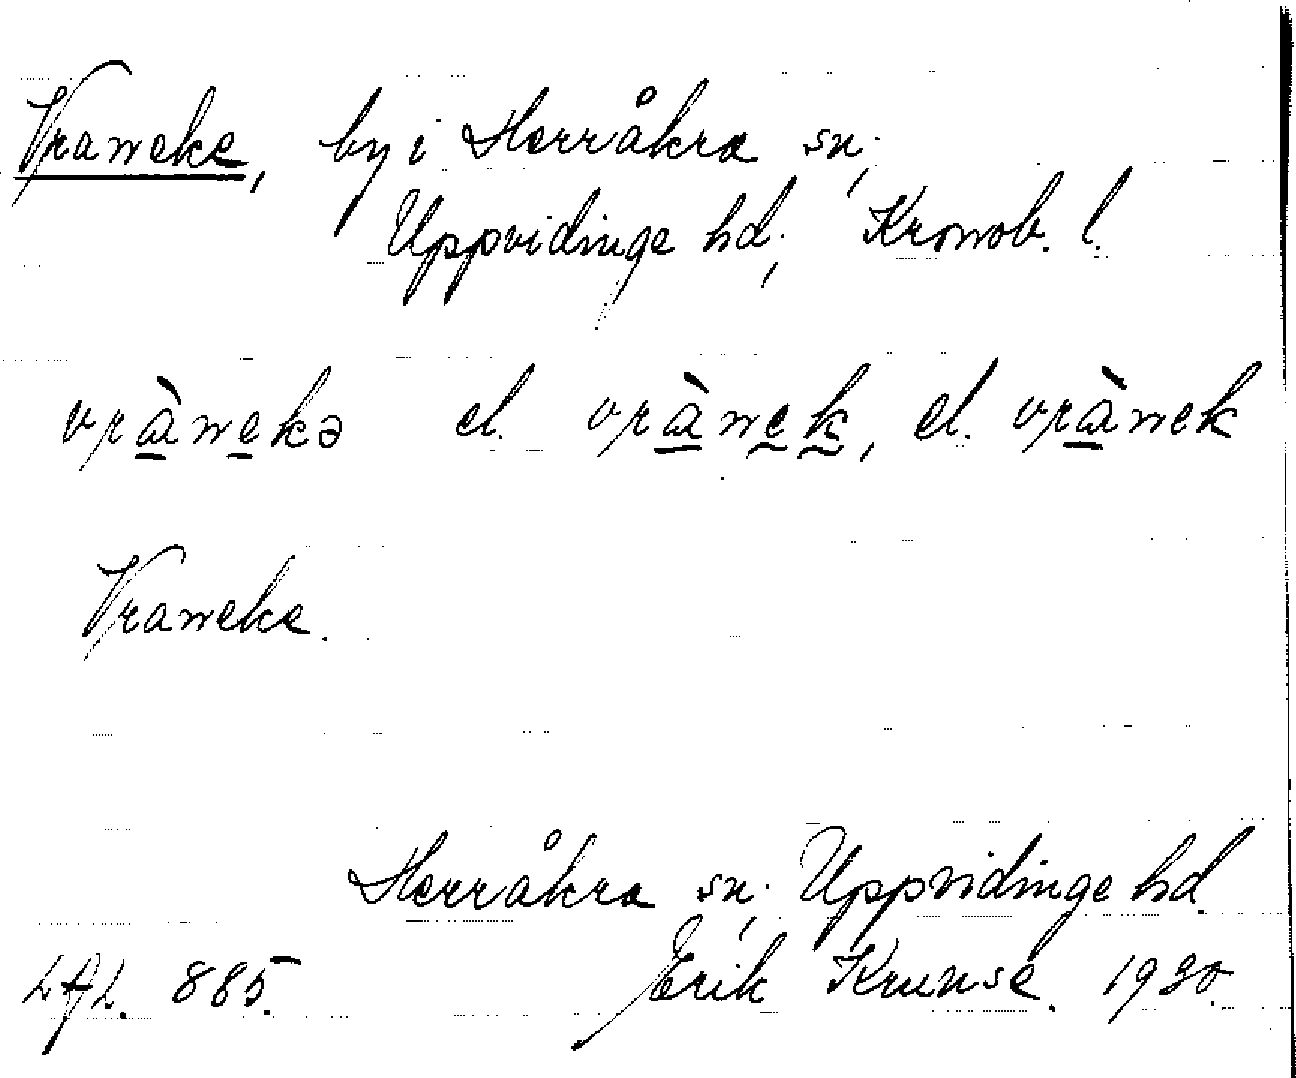 Vraneke, by i Herråkra sn.,
Uppvidinge hd., Kronob. l.
vrànekə el. vrànek, el. vrànek
Vraneke.
Herråkra sn., Uppvidinge hd.
LAL. 885. Erik Kruuse. 1930.